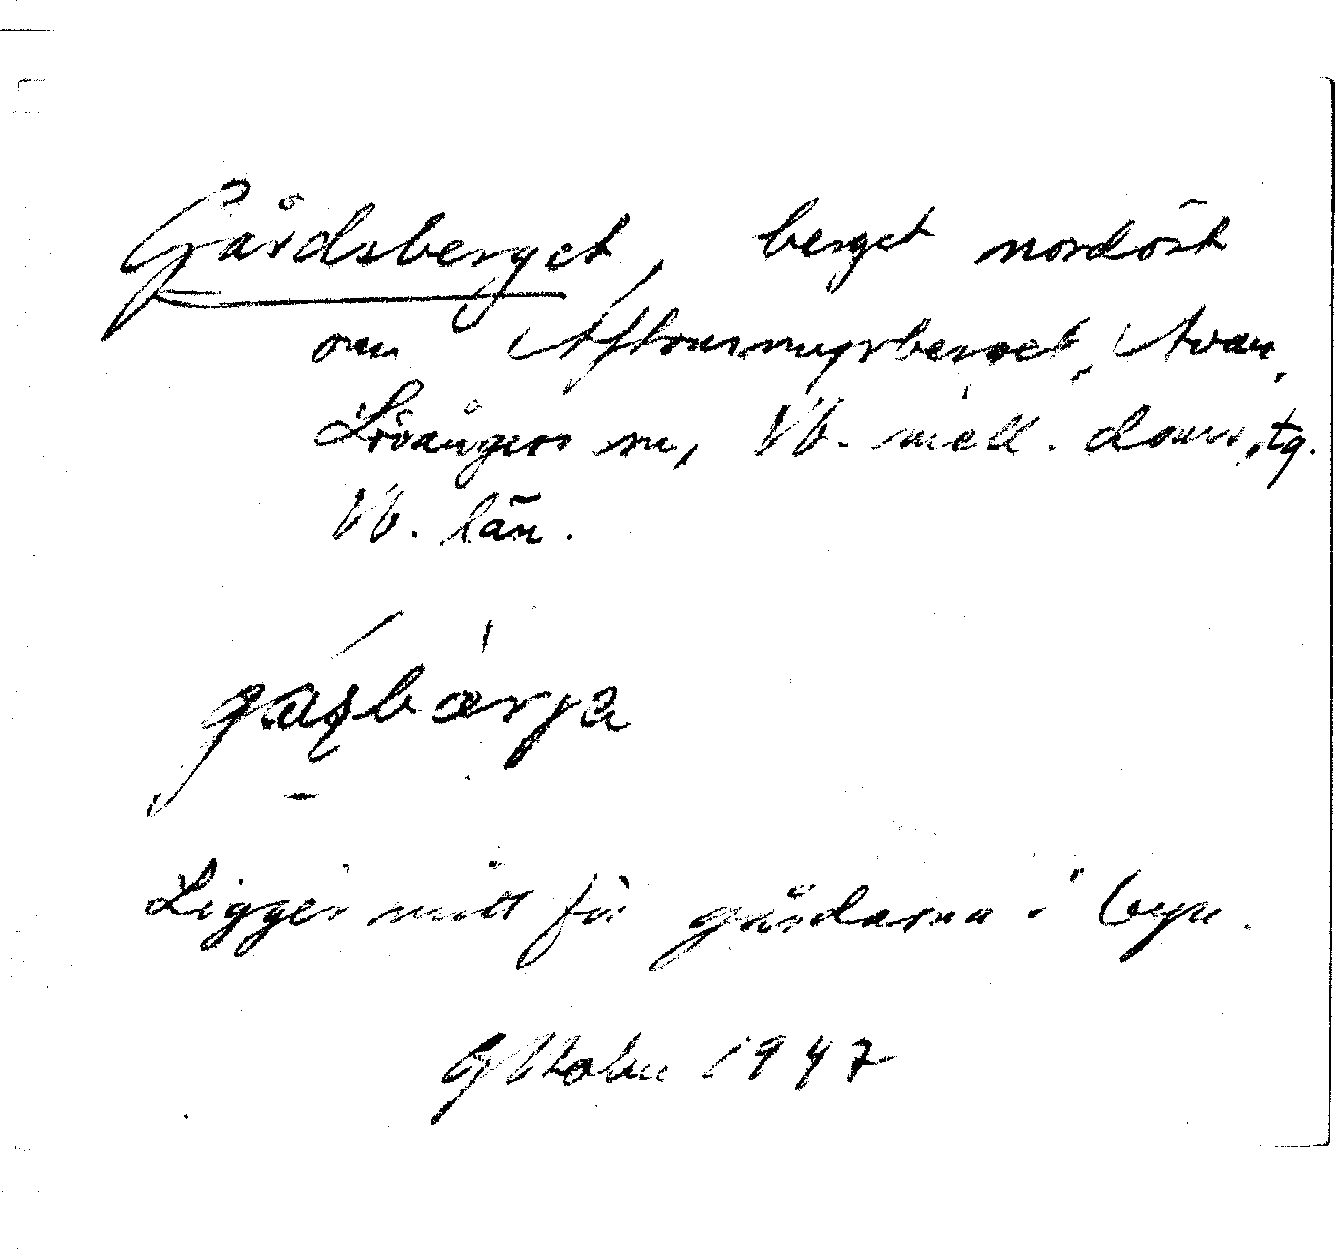 Gårdsberget, berget nordöst
om Aftonmyrberget, Avan,
Lövångers sn, Vb. mell. doms.tg.
Vb. län.
Ligger mitt för gårdarna i byn.
Oktober 1947